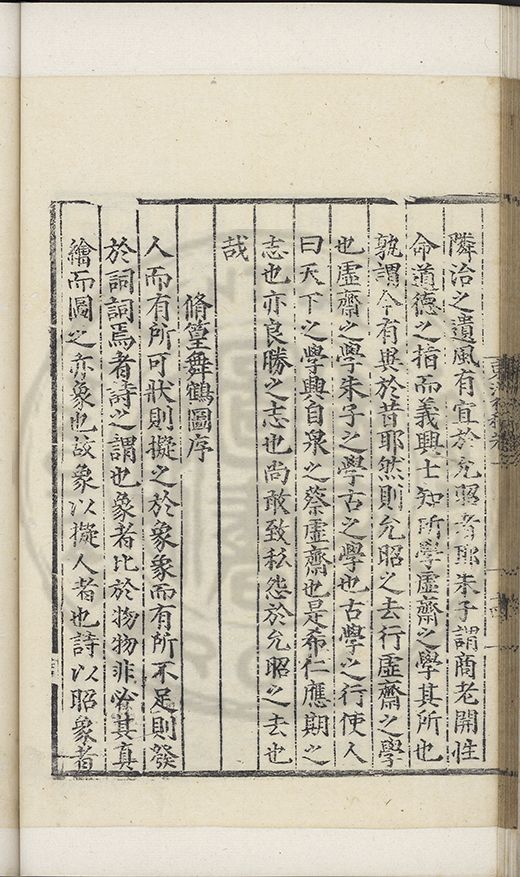 隣治之遺風有宜於允昭者耶朱子謂商老開性
命道德之指而義興士知所學虛齋之學其所也
孰謂今有異於昔耶然則允昭之去行虛齋之學
也虛齋之學朱子之學古之學也古學之行使人
曰天下之學興自泉之蔡虛齋也是希仁應期之
志也亦良勝之志也尚敢致私怨於允昭之去也
哉
脩篁舞鶴圖序
人而有所可狀則擬之於象象而有所不足則發
於詞詞焉者詩之謂也象者比於物物非必其真
繪而圖之亦象也故象以擬人者也詩以昭象者